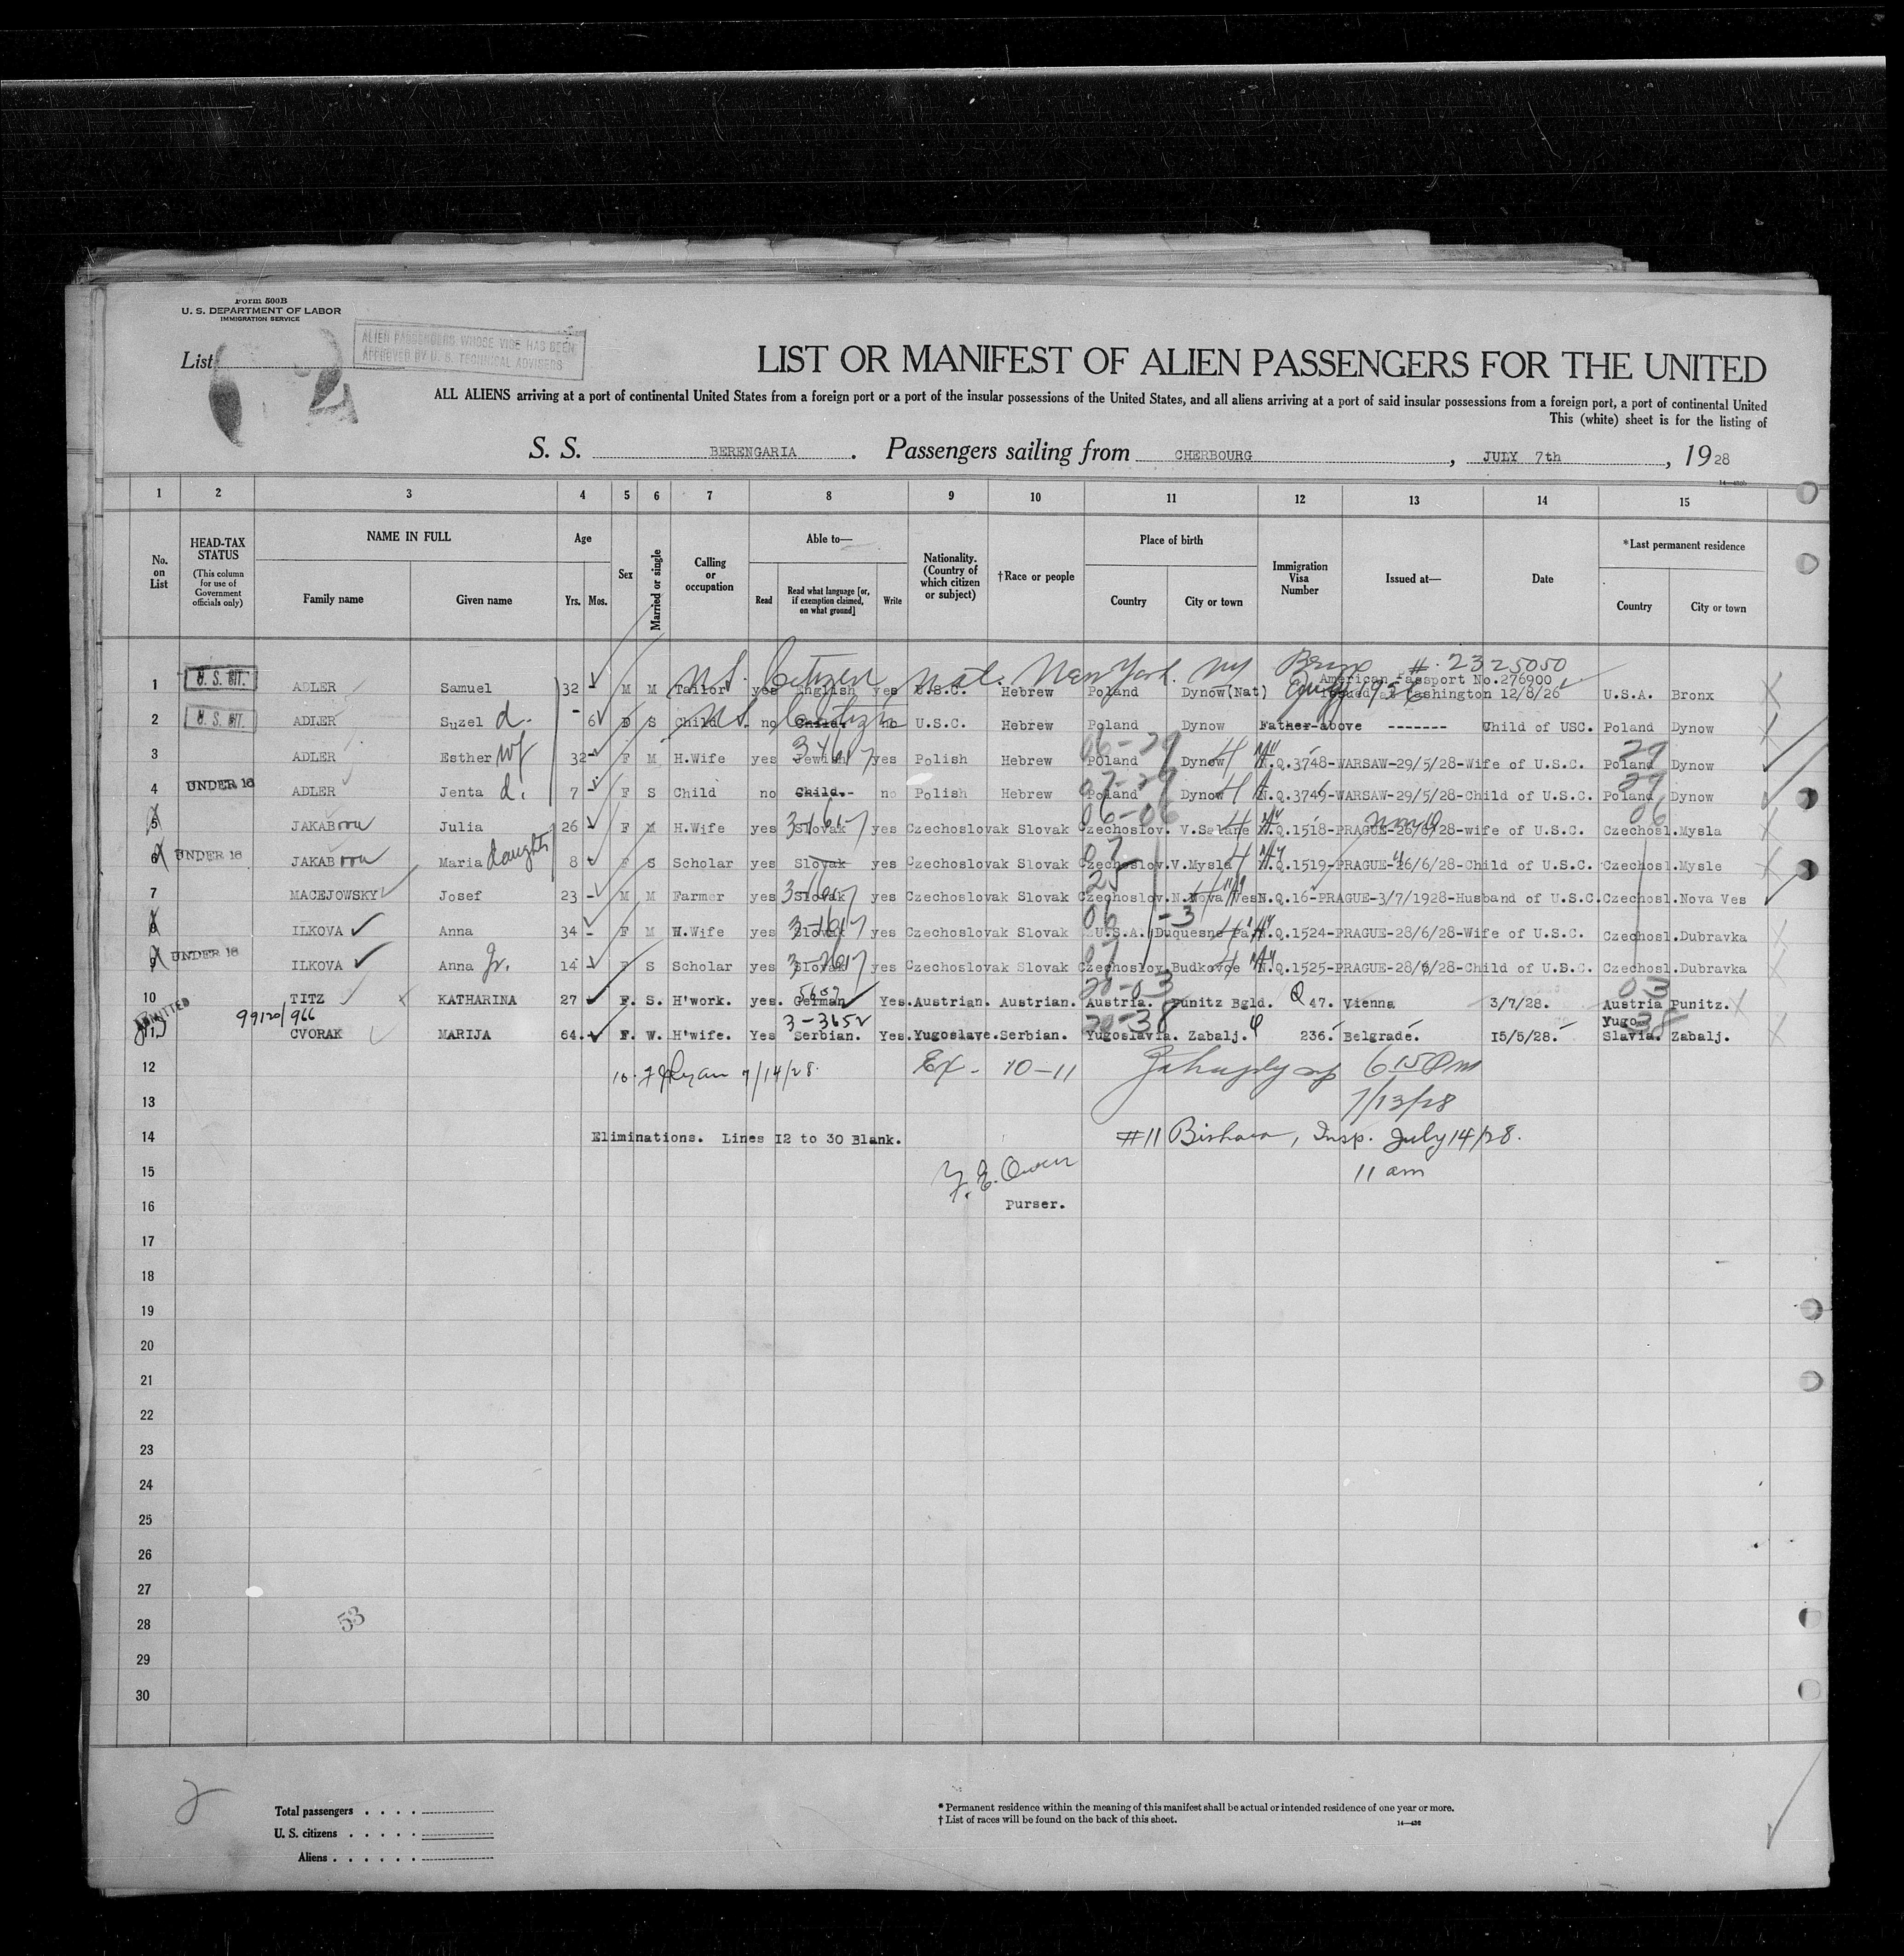 Form 500B
U. S. DEPARTMENT OF LABOR
IMMIGRATION SERVICE
ALIEN PASSENGERS WHOSE VISE HAS BEEN
APPROVED BY U. S. TECHNICAL ADVISERS
List
LIST OR MANIFEST OF ALIEN PASSENGERS FOR THE UNITED
ALL ALIENS arriving at a port of continental United States from a foreign port or a port of the insular possessions of the United States, and all aliens arriving at a port of said insular possessions from a foreign port, a port of continental United
This (white) sheet is for the listing of
S. S. BERENGARIA. Passengers sailing from CHERBOURG, JULY 7th, 1928
1 2 3 4 5 6 7 8 9 10 11 12 13 14 15
No. on List
HEAD-TAX STATUS (This column for use of Government officials only)
NAME IN FULL Family name Given name
Age Yrs. Mos.
Sex
Married or single
Calling or occupation
Able to— Read Read what language [or, if exemption claimed, on what ground] Write
Nationality. (Country of which citizen or subject)
†Race or people
Place of birth Country City or town
Immigration Visa Number
Issued at—
Date
*Last permanent residence Country City or town
U.S. Citizen Nat. New York. NY Bronx #. 2325050
1 U.S. CIT. ADLER Samuel 32 - M M Tailor yes English yes U.S.C. Hebrew Poland Dynow(Nat) American Passport No.276900 Issued at Washington 12/8/26 U.S.A. Bronx
2 U.S. CIT. ADLER Suzel d. - 6 S Child US Citizen no Child. no U.S.C. Hebrew Poland Dynow Father above ------- Child of USC. Poland Dynow
3 ADLER Esther wf 32- F M H.Wife yes Jewish yes Polish Hebrew Poland Dynow N.Q.3748-WARSAW-29/5/28-Wife of U.S.C. Poland Dynow
4 UNDER 16 ADLER Jenta d. 7 - F S Child no Child.- no Polish Hebrew Poland Dynow N.Q.3749-WARSAW-29/5/28-Child of U.S.C. Poland Dynow
5 JAKABova Julia 26 F M H.Wife yes Slovak yes Czechoslovak Slovak Czechoslov. N.Q.1518-PRAGUE-26/6/28-wife of U.S.C. Czechosl.Mysla
6 UNDER 16 JAKABova Maria daughter 8 F S Scholar yes Slovak yes Czechoslovak Slovak Czechoslov.V.Mysla N.Q.1519-PRAGUE-26/6/28-Child of U.S.C. Czechosl.Mysle
7 MACEJOWSKY Josef 23 - M M Farmer yes Slovak yes Czechoslovak Slovak Czechoslov.N.Nova Ves N.Q.16-PRAGUE-3/7/1928-Husband of U.S.C. Czechosl.Nova Ves
8 ILKOVA Anna 34 - F M H.Wife yes Slovak yes Czechoslovak Slovak U.S.A. Duquesne Pa. N.Q.1524-PRAGUE-28/6/28-Wife of U.S.C. Czechosl.Dubravka
9 UNDER 16 ILKOVA Anna Jr. 14 F S Scholar yes Slovak yes Czechoslovak Slovak Czechoslov.Budkovce N.Q.1525-PRAGUE-28/6/28-Child of U.S.C. Czechosl.Dubravka
10 TITZ KATHARINA 27 F. S. H'work. yes. German Yes. Austrian. Austrian. Austria. Punitz Bgld. Q 47. Vienna 3/7/28. Austria Punitz.
ADMITTED 99120/966 CVORAK MARIJA 64. F. W. H'wife. Yes Serbian. Yes. Yugoslave. Serbian. Yugoslavia. Zabalj. 236. Belgrade. 15/5/28. Yugo Slavia. Zabalj.
12 10. Ryan 7/14/28. Ex - 10-11 6 15 Pm
13 7/13/28
14 Eliminations. Lines 12 to 30 Blank. #11 Insp. July 14/28.
15 F. E. Owen 11 am
16 Purser.
17
18
19
20
21
22
23
24
25
26
27
28 53
29
30
2
Total passengers . . . .
U. S. citizens . . . . .
Aliens . . . . . .
* Permanent residence within the meaning of this manifest shall be actual or intended residence of one year or more.
† List of races will be found on the back of this sheet.